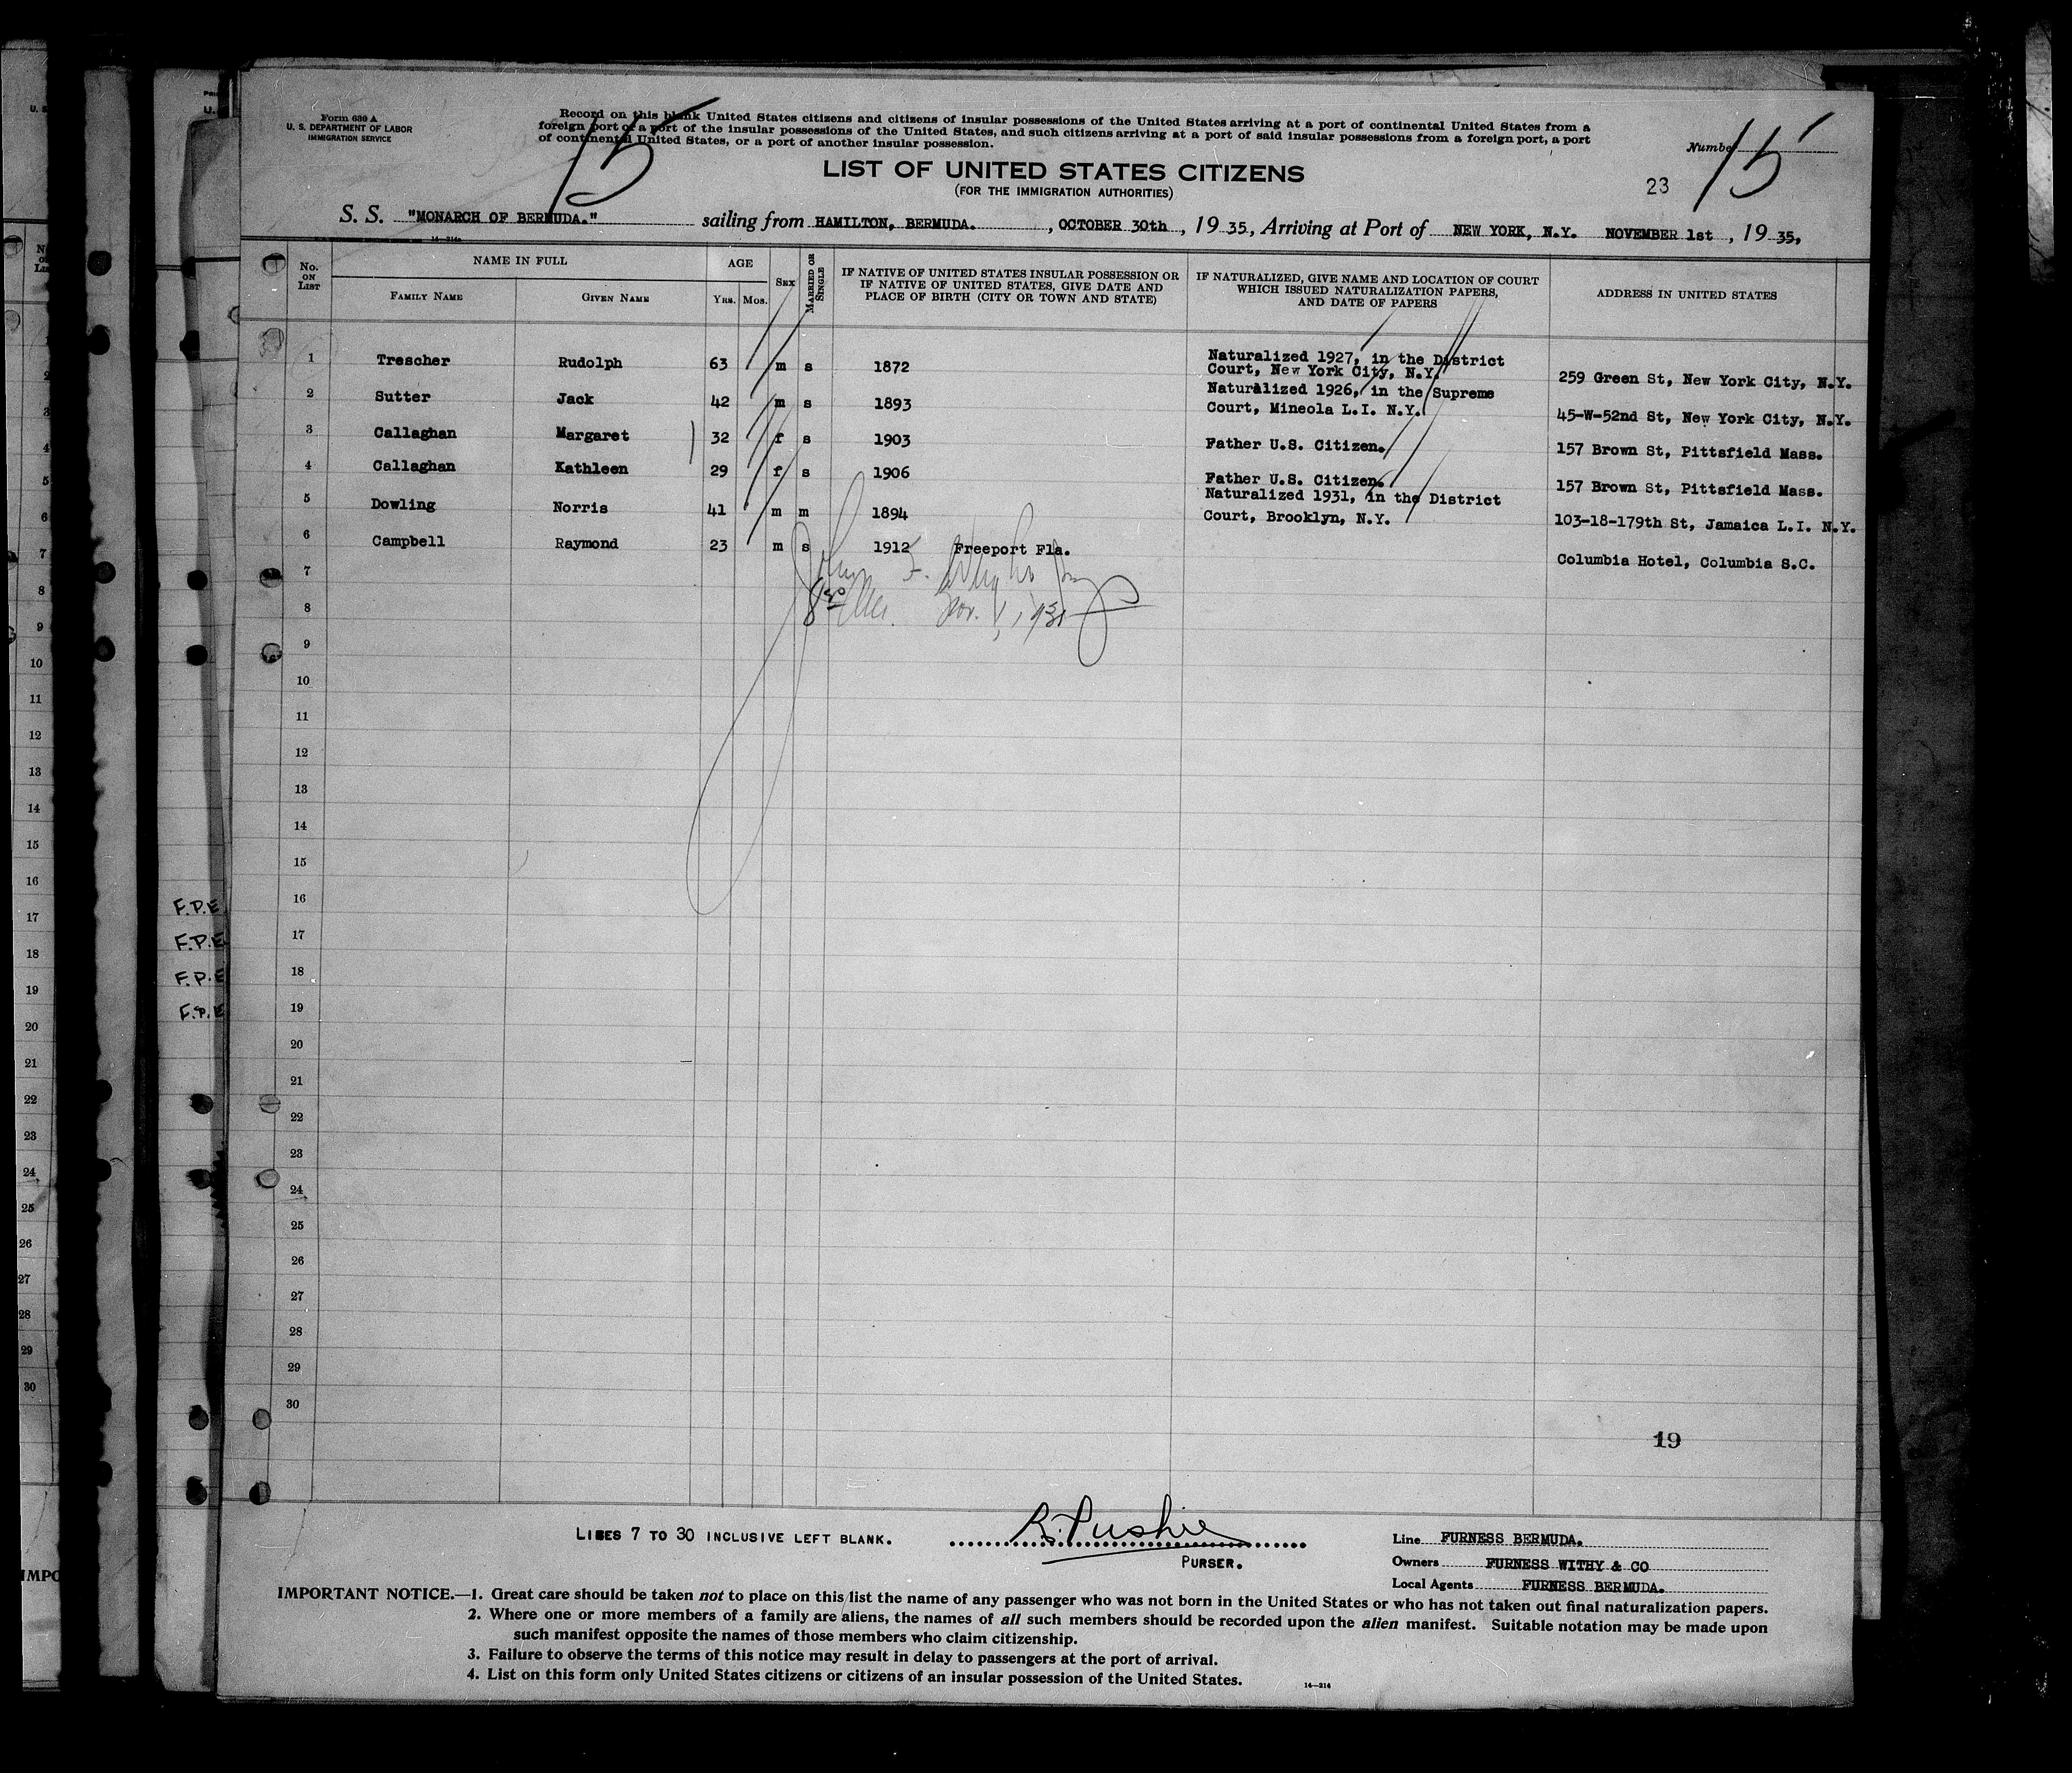 Form 630 A
U. S. DEPARTMENT OF LABOR
IMMIGRATION SERVICE
Record on this blank United States citizens and citizens of insular possessions of the United States arriving at a port of continental United States from a
foreign port or a port of the insular possessions of the United States, and such citizens arriving at a port of said insular possessions from a foreign port, a port
of continental United States, or a port of another insular possession.
15
Number 15
LIST OF UNITED STATES CITIZENS
(FOR THE IMMIGRATION AUTHORITIES)
23
S. S. "MONARCH OF BERMUDA." sailing from HAMILTON, BERMUDA. , OCTOBER 30th , 19 35, Arriving at Port of NEW YORK, N.Y. NOVEMBER 1st , 19 35,
14-214a
No. ON LIST NAME IN FULL FAMILY NAME GIVEN NAME AGE YRS. MOS. SEX MARRIED OR SINGLE IF NATIVE OF UNITED STATES INSULAR POSSESSION OR IF NATIVE OF UNITED STATES, GIVE DATE AND PLACE OF BIRTH (CITY OR TOWN AND STATE) IF NATURALIZED, GIVE NAME AND LOCATION OF COURT WHICH ISSUED NATURALIZATION PAPERS, AND DATE OF PAPERS ADDRESS IN UNITED STATES
1 Trescher Rudolph 63 m s 1872 Naturalized 1927, in the District Court, New York City, N.Y. 259 Green St, New York City, N.Y.
2 Sutter Jack 42 m s 1893 Naturalized 1926, in the Supreme Court, Mineola L.I. N.Y. 45-W-52nd St, New York City, N.Y.
3 Callaghan Margaret 32 f s 1903 Father U.S. Citizen. 157 Brown St, Pittsfield Mass.
4 Callaghan Kathleen 29 f s 1906 Father U.S. Citizen. 157 Brown St, Pittsfield Mass.
5 Dowling Norris 41 m m 1894 Naturalized 1931, in the District Court, Brooklyn, N.Y. 103-18-179th St, Jamaica L.I. N.Y.
6 Campbell Raymond 23 m s 1912 Freeport Fla. Columbia Hotel, Columbia S.C.
7
John F.
8
Nov. 1, 193
9
10
11
12
13
14
15
16
17
18
19
20
21
22
23
24
25
26
27
28
29
30
F.P.E
F.P.E
F.P.E
F.P.E
19
LINES 7 TO 30 INCLUSIVE LEFT BLANK.
R. Pushie
PURSER.
Line FURNESS BERMUDA.
Owners FURNESS WITHY & CO
Local Agents FURNESS BERMUDA.
IMPORTANT NOTICE.—1. Great care should be taken not to place on this list the name of any passenger who was not born in the United States or who has not taken out final naturalization papers.
2. Where one or more members of a family are aliens, the names of all such members should be recorded upon the alien manifest. Suitable notation may be made upon
such manifest opposite the names of those members who claim citizenship.
3. Failure to observe the terms of this notice may result in delay to passengers at the port of arrival.
4. List on this form only United States citizens or citizens of an insular possession of the United States.
14-214